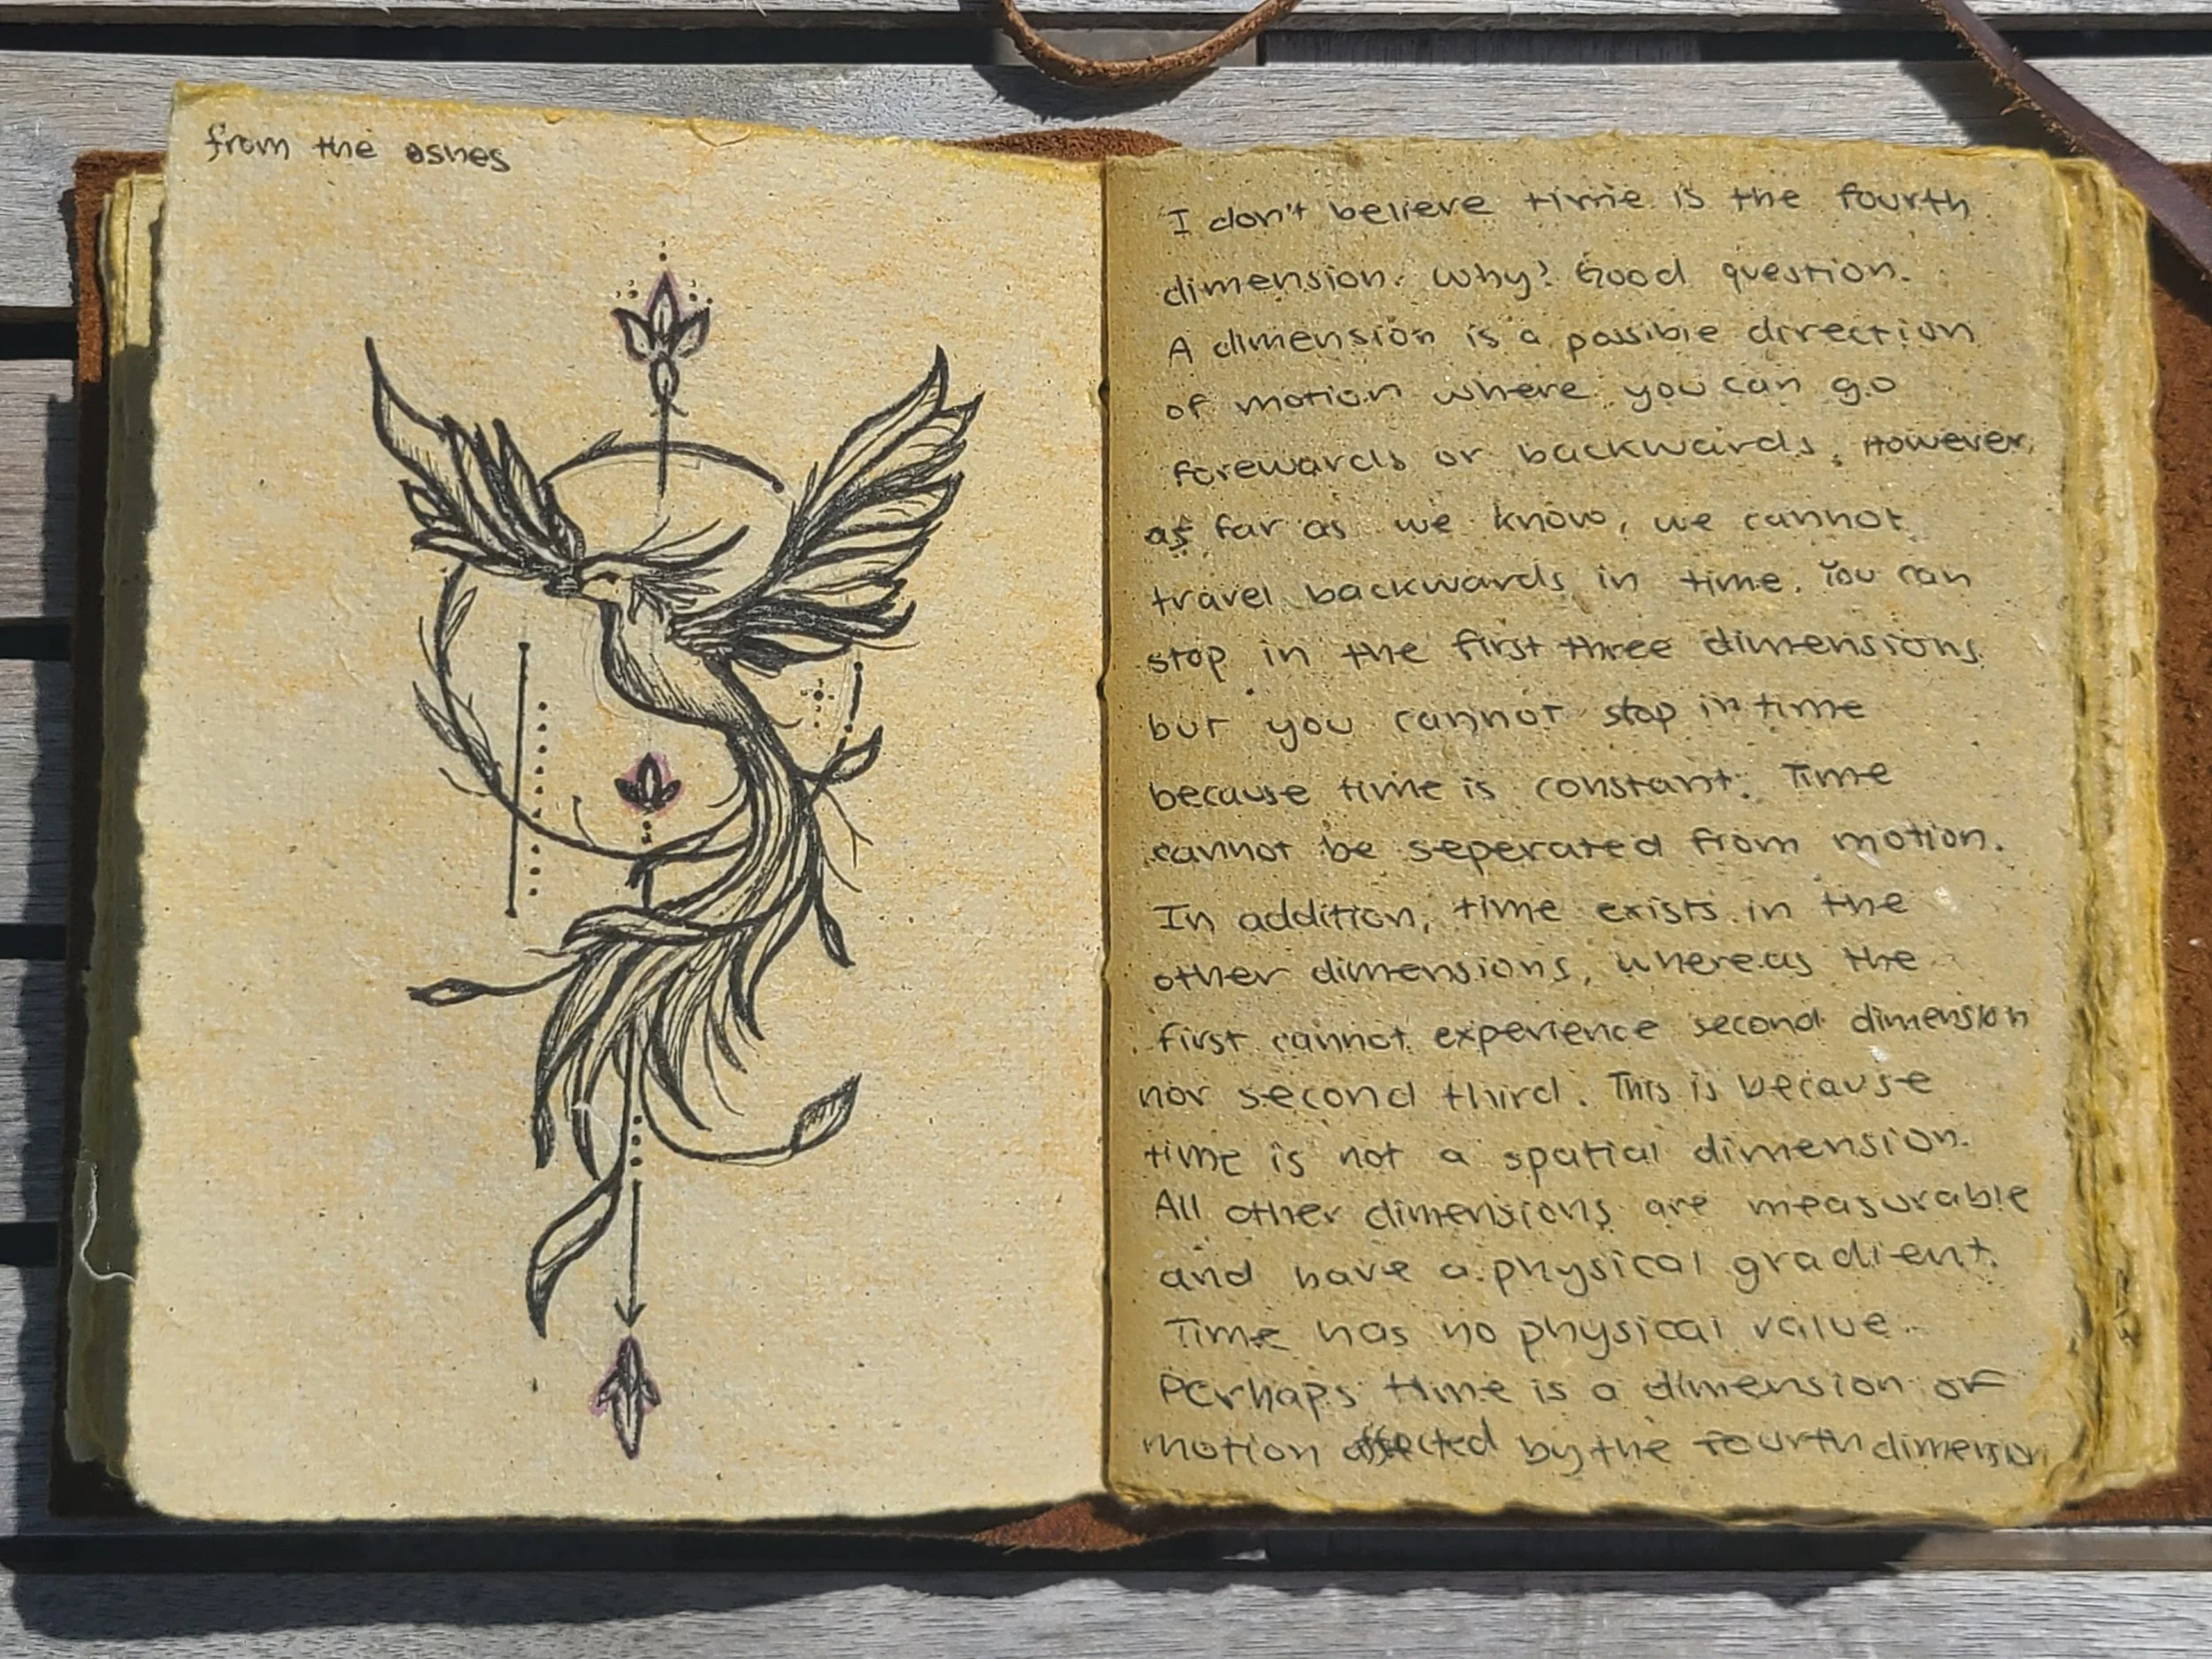 from the ashes
I don't believe time is the fourth
dimension. Why? Good question.
A dimension is a possible direction
of motion where you can go
forewards or backwards. However,
as far as we know, we cannot
travel backwards in time. You can
stop in the first three dimensions
but you cannot stop in time
because time is constant. Time
cannot be seperated from motion.
In addition, time exists in the
other dimensions, whereas the
first cannot experience second dimension
nor second third. This is because
time is not a spatial dimension.
All other dimensions are measurable
and have a physical gradient.
Time has no physical value.
Perhaps time is a dimension of
motion affected by the fourth dimension